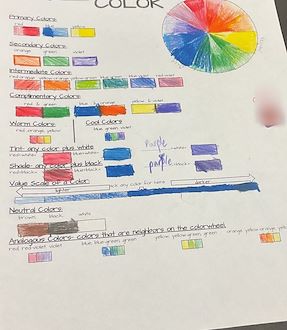 COLOR
Primary Colors:
red blue yellow
Secondary Colors:
orange green violet
Intermediate Colors:
Complimentary Colors:
red & green blue & orange yellow & violet
Warm Colors: Cool Colors
red, orange, yellow blue, green, violet
Tint- any color plus white
red+white= blue+white= purple +white=
Shade- any color plus black
red+black= blue+black= purple +black=
Value Scale of a Color:
lighter pick any color for here darker
Neutral Colors:
brown black white
Analogous Colors- colors that are neighbors on the colorwheel
red, red-violet, violet blue, blue-green, green yellow, yellow-green, green